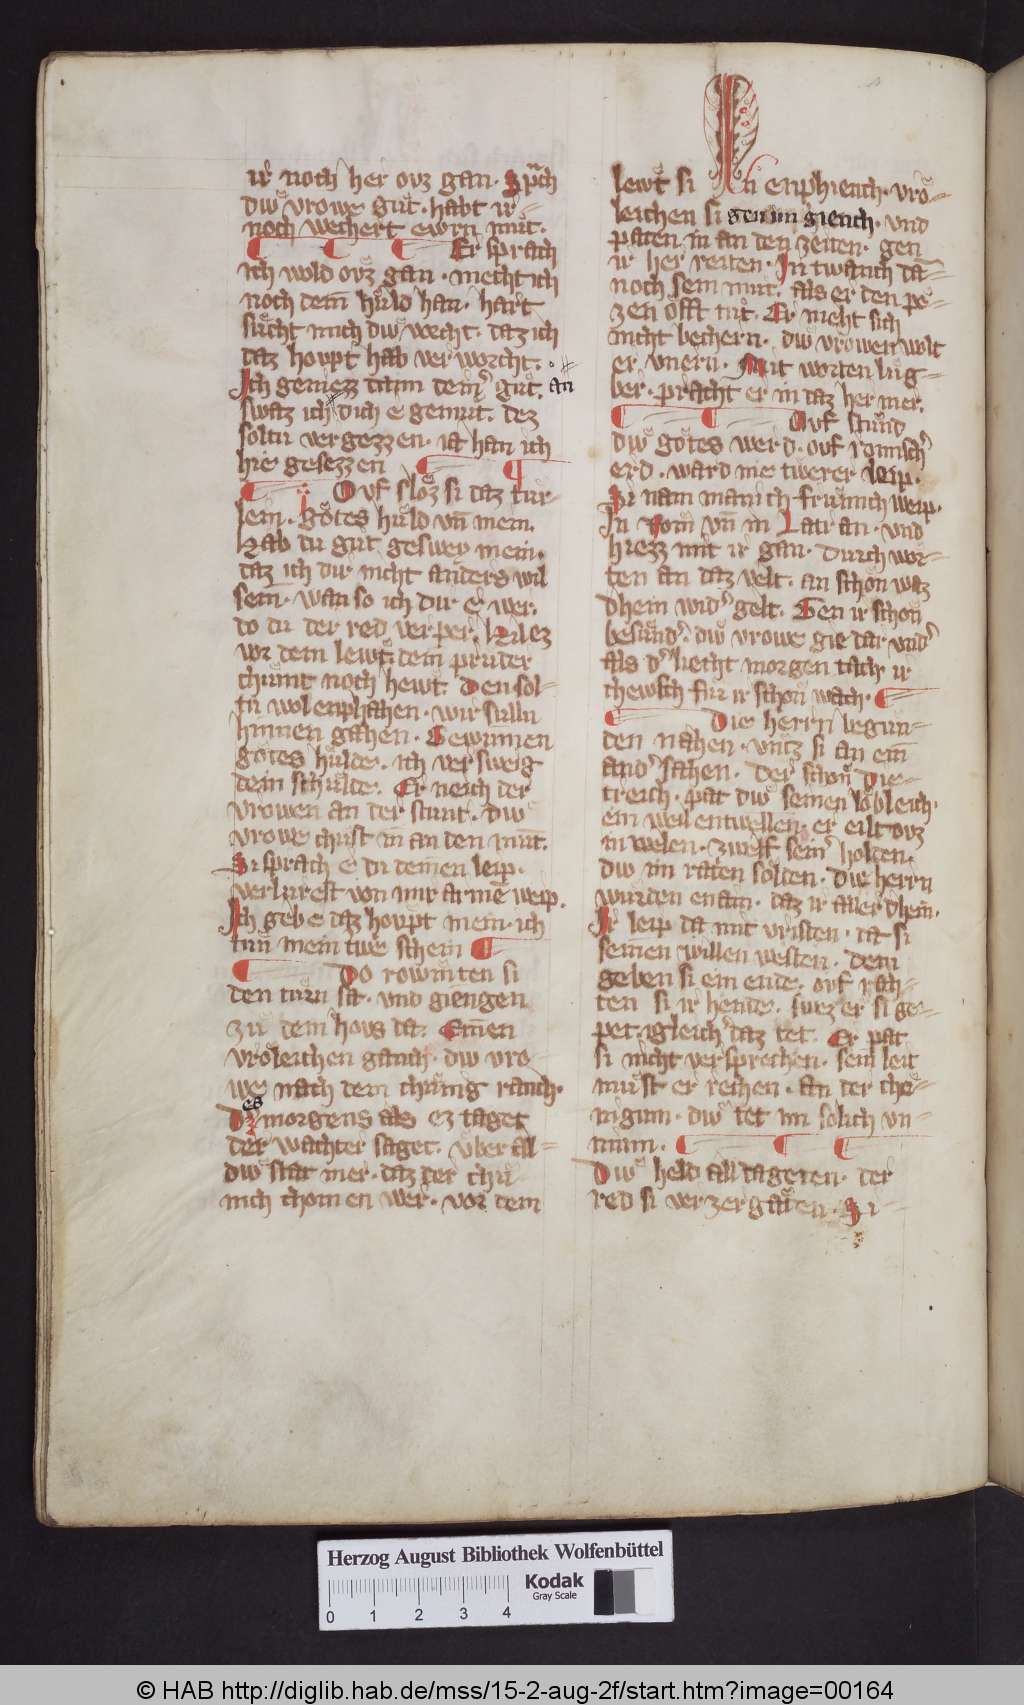 ir noch her ovz gan · Sprach
diwͤ vrowe guͤt · habt ir
noch wechert ewrn muͤt ·
Er sprach
ich wold ovz gan · mecht ich
noch dein huͤld han · hart
suͤcht mich diwͤ vecht · daz ich
daz hovpt hab ver worcht ·
Ich geniezz dann deinˀ guͤt · an
swaz ich dich e gemut · dez
soltu vergezzen · ia han ich
hie gesezzen
Ovf sloͤz si daz tur-
lein · gotes huͤld vn̄ mein ·
Hab du gut geswey mein ·
daz ich dir nicht anders wil
sein · wan so ich dir e wer ·
do du der red verper ·
vor dem lewt dein pruder
chuͤmt noch hewt · Den sol-
tu wol enphahen · wir sulln
hinnen gahen · Gewinnen
gotes hulde · ich versweig
dein schulde · Er neich der
vrowen an der stunt · diwͤ
vrowe chust in an den munt ·
Si sprach e du deinen leip ·
verlurest von mir armē weip ·
Ich gebe daz hovpt mein · ich
tuͤn mein triwe schein
Do rowmten si
den turn sa · vnd giengen
zuͤ dem hovs da · Einen
vroleichen ganch · diw vro-
we nach dem chuͤnig ranch ·
Des morgens als ez taget
der wachter saget · vber all-
diwͤ stat mer · daz der chu-
nich chomen wer · vor dem
lewt si In enphiench · vroͤ-
leichen si gen im giench · vnd
paten in an den zeiten · gen
ir her reiten · In twanch dan-
noch sein mut · als er den pe-
zen offt tuͤt · Er mecht sich
nicht bechern · diwͤ vrowen wolt
er vnern · Mit worten luͤg-
ber · pracht er in daz her mer ·
Ovf stuͤnd
diwͤ gotes werd · ovf romischˀ
erd · ward nie tiwerer leip ·
Si nam manich fruͤmich weip ·
In Rom vn̄ in Latran · vnd
hiezz mit ir gan · durch wor-
ten an daz velt · an schon waz
dhein widˀ gelt · Gen ir schon
besundˀ · diwͤ vrowe gie dar vndˀ
als dˀ liecht morgen tach · ir
chewsch fur ir schon wach ·
Die herrn begun-
den nahen · vntz si an ein
andˀ sahen · der schon Die-
treich · pat diwͤ seinen lobleich ·
ein weil entwellen · er eilt ovz
in welen · zwelf seinˀ holden ·
diw im raten solden · die herrn
wurden enain · daz ir aller dhein ·
Ir leip da mit vristen · ia si
seinen willen westen · dem
geben si ein ende · ovf rach-
ten si ir hende · swez er si ge-
pet · igleichˀ daz tet · Er pat
si nicht versprechen · sein leit
muͤst er rechen · an der choͤ-
niginn · diwͤ tet im solich vn-
minn ·
Diwͤ held all dageten · der
red si verzergaden · Si-
Herzog August Bibliothek Wolfenbüttel
0 1 2 3 4
Kodak
Gray Scale
© HAB http://diglib.hab.de/mss/15-2-aug-2f/start.htm?image=00164